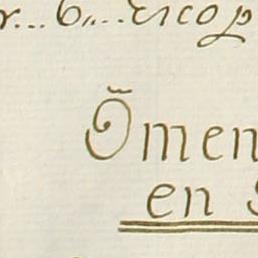 r... 6,,... Ercop
Õmen
en S